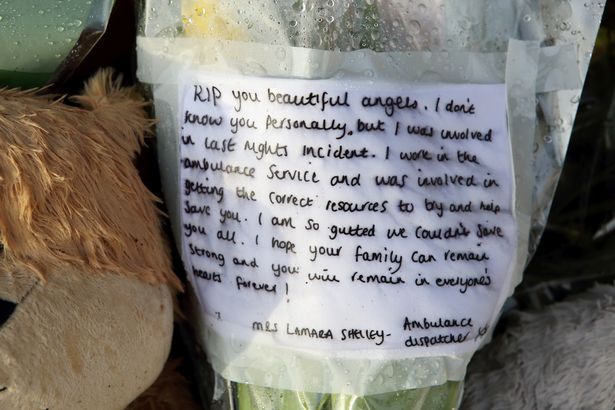 RIP you beautiful angels. I don't
know you Personally, but I was involved
in last nights incident. I work in the
ambulance service and was involved in
getting the correct resources to try and help
save you. I am so gutted we couldn't save
you all. I hope your family can remain
strong and you will remain in everyone's
hearts forever!
x MRS LAMARA SHELLEY- Ambulance
dispatcher xx